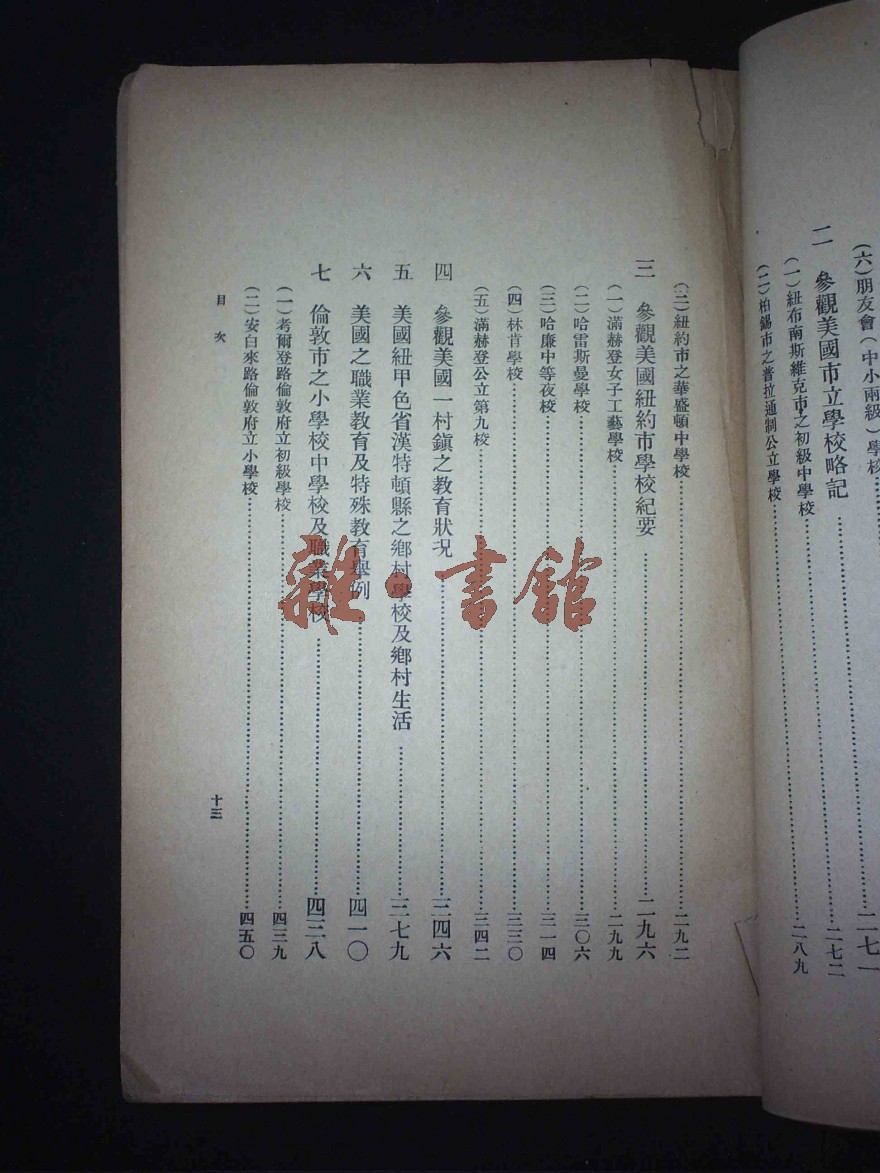 (六)朋友會(中小兩級)學校……二七一
二 參觀美國市立學校略記……二七二
(一)紐布南斯維克市之初級中學校
(二)柏錫市之普拉通制公立學校……二八九
(三)紐約市之華盛頓中學校……二九二
三 參觀美國紐約市學校紀要……二九六
(一)滿赫登女子工藝學校……二九九
(二)哈雷斯曼學校……三〇六
(三)哈廉中等夜校……三一四
(四)林肯學校……三三〇
(五)滿赫登公立第九校……三四二
四 參觀美國一村鎮之教育狀況……三四六
五 美國紐甲色省漢特頓縣之鄉村學校及鄉村生活……三七九
六 美國之職業教育及特殊教育舉例……四一〇
七 倫敦市之小學校中學校及職業學校……四三八
(一)考爾登路倫敦府立初級學校……四三九
(二)安白來路倫敦府立小學校……四五〇
目次
十三
雜·書館